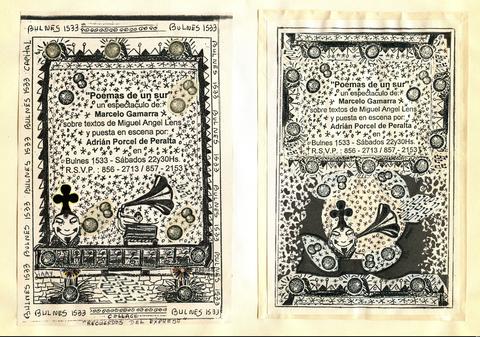 BULNES 1533
BULNES 1533
BULNES 1533 BULNES 1533 BULNES 1533 BULNES 1533 CAPITAL
BULNES 1533 BULNES 1533 BULNES 1533 BULNES 1533
"Poemas de un sur"
un espectáculo de:
Marcelo Gamarra
sobre textos de Miguel Angel Lens
y puesta en escena por:
Adrián Porcel de Peralta
en
Bulnes 1533 - Sábados 22y30Hs.
R.S.V.P. : 856 - 2713 / 857 - 2153
BULNES 1533
BULNES 1533
COLLAGE
"RECUERDOS DEL EXPRESO"
"Poemas de un sur"
un espectáculo de:
Marcelo Gamarra
sobre textos de Miguel Angel Lens
y puesta en escena por:
Adrián Porcel de Peralta
en
Bulnes 1533 - Sábados 22y30Hs.
R.S.V.P. : 856 - 2713 / 857 - 2153